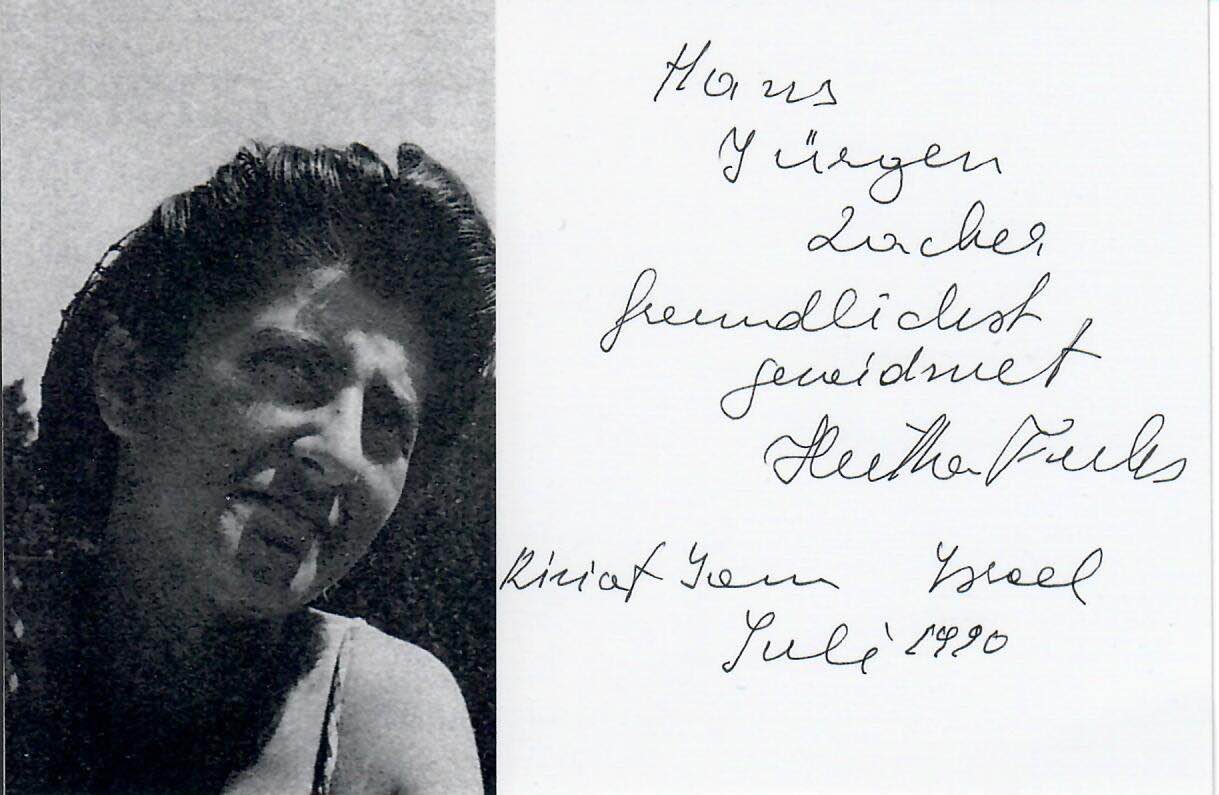 Hans
Jürgen
Zacher
freundlichst
gewidmet
Hertha Fuchs
Kiriat Yam Israel
Juli 1990